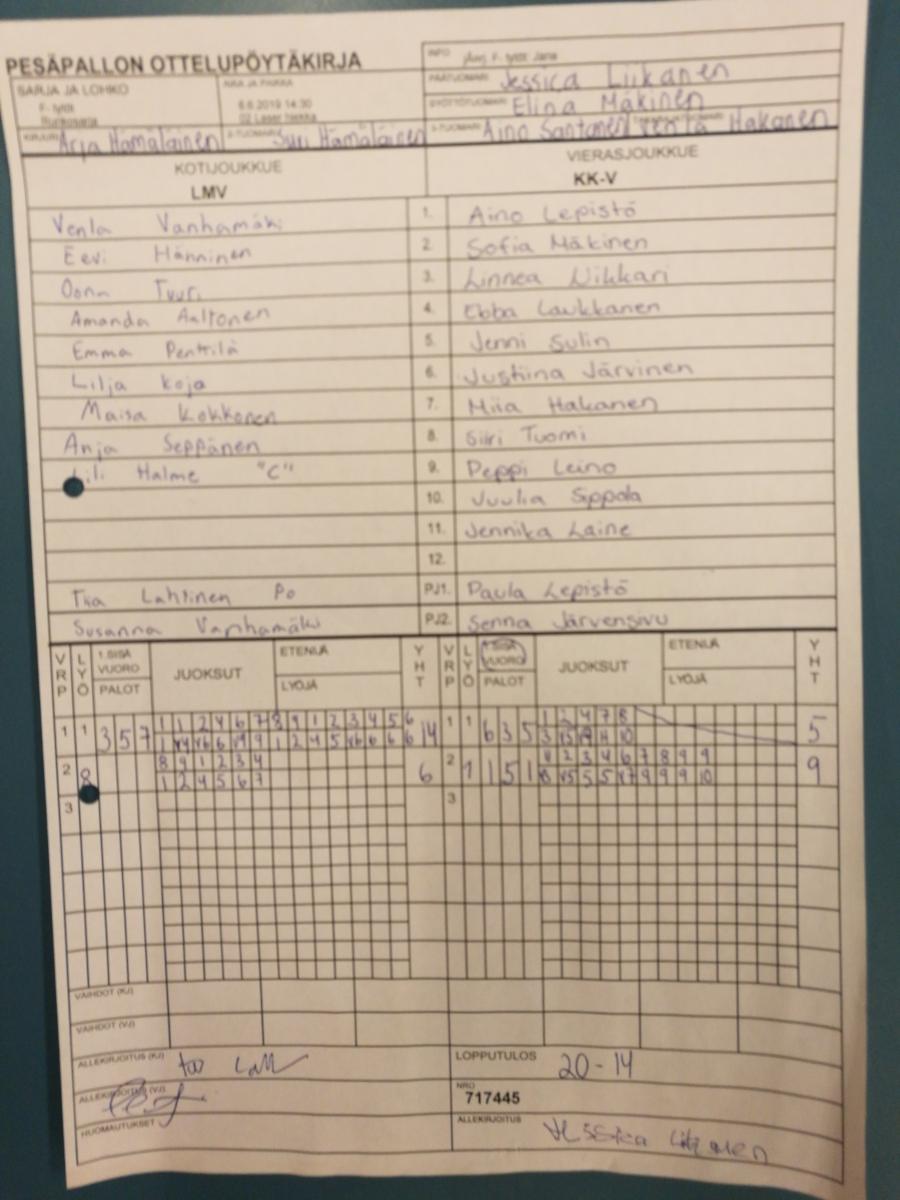 PESÄPALLON OTTELUPÖYTÄKIRJA
INFO F-tytöt Jana
PÄÄTUOMARI Jessica Liikanen
SARJA JA LOHKO AIKA JA PAIKKA
SYÖTTÖTUOMARI Elina Mäkinen
F-tytöt 6.6.2019 14:30
Runkosarja 02 Laser hiekka
KIRJURI Arja Hämäläinen 2-TUOMARI Suvi Hämäläinen 3-TUOMARI Aino Santanen Venla Hakanen
KOTIJOUKKUE VIERASJOUKKUE
LMV KK-V
Venla Vanhamäki 1. Aino Lepistö
Eevi Hänninen 2. Sofia Mäkinen
Oona Tuuri 3. Linnea Nikkari
Amanda Aaltonen 4. Ebba Laukkanen
Emma Penttilä 5. Jenni Sulin
Lilja Koja 6. Justiina Järvinen
Maisa Kokkonen 7. Miia Hakanen
Anja Seppänen 8. Siiri Tuomi
Lili Halme "C" 9. Peppi Leino
10. Juulia Sippola
11. Jennika Laine
12.
Tiia Lahtinen Po PJ1. Paula Lepistö
Susanna Vanhamäki PJ2. Senna Järvensivu
VRP LYÖ 1.SISÄ VUORO PALOT JUOKSUT ETENIJÄ LYÖJÄ YHT VRP LYÖ 1.SISÄ VUORO PALOT JUOKSUT ETENIJÄ LYÖJÄ YHT
1 1 3 5 7 1 1 2 4 6 7 8 9 1 2 3 4 5 6 14 1 1 6 3 5 1 2 4 7 8 5
2 8 8 9 1 2 3 4 6 2 1 1 5 1 2 3 4 6 7 8 9 9 9
1 2 4 5 6 7
3 3
VAIHDOT (KJ)
VAIHDOT (VJ)
ALLEKIRJOITUS (KJ) LOPPUTULOS 20-14
ALLEKIRJOITUS (VJ) NRO 717445
HUOMAUTUKSET ALLEKIRJOITUS Jessica Liikanen